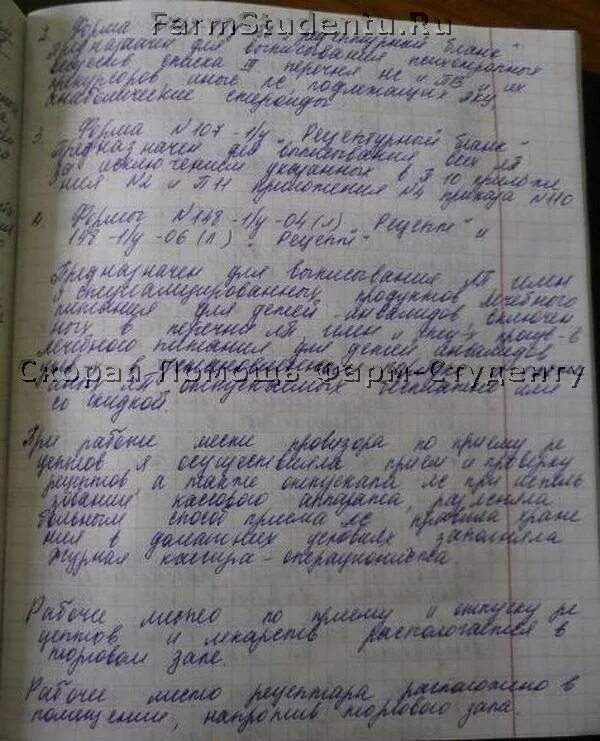 FarmStudentu.Ru
2. Форма рецептурный бланк"
Предназначен для выписывания психотропных
веществ списка III перечня нс и ПВ и их
прекурсоров иные лс, подлежащих ПКУ
анаболические стероиды
3. Форма N107-1/у "Рецептурный бланк"
Предназначен для выписывания всех ЛП
за исключением указанных в п 10 приложе
ния N2 и ПН приложения N4 приказа N110
4. Формы N148-1/у-04(л) "Рецепт" и
148-1/у-06(л) "Рецепт"
Предназначен для выписывания ЛП имен
и специализированных продуктов лечебного
питания для детей-инвалидов включен
ных в перечни ЛП имн и прод-в
лечебного питания для детей инвалидов
Скорая Помощь Фарм-Студенту
отпускаемых бесплатно или
со скидкой.
При рабоче месте провизора по приему ре
цептов я осуществляла прием и проверку
рецептов а также отпускала лс при исполь
зовании кассового аппарата, разъясняла
больным способ приема лс правила хране
ния в домашних условиях заполняла
журнал кассира-операциониста.
Рабоче место по приему и отпуску ре
цептов и лекарств располагается в
торговом зале.
Рабоче место рецептара расположено в
помещении, напротив торгового зала